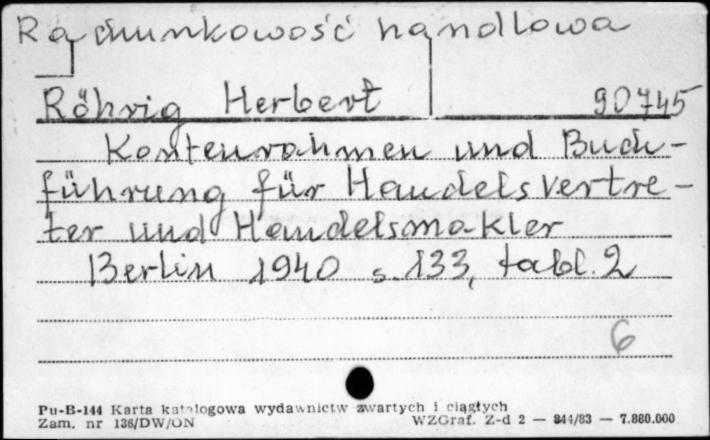 Rachunkowość handlowa
Röhrig Herbert 90745
Kontenrahmen und Buch-
führung für Handelsvertre-
ter und Handelsmakler
Berlin 1940 s. 133, tabl. 2
6
Pu-B-144 Karta katalogowa wydawnictw zwartych i ciągłych
Zam. nr 136/DW/ON WZGraf. Z-d 2 — 844/83 — 7.880.000